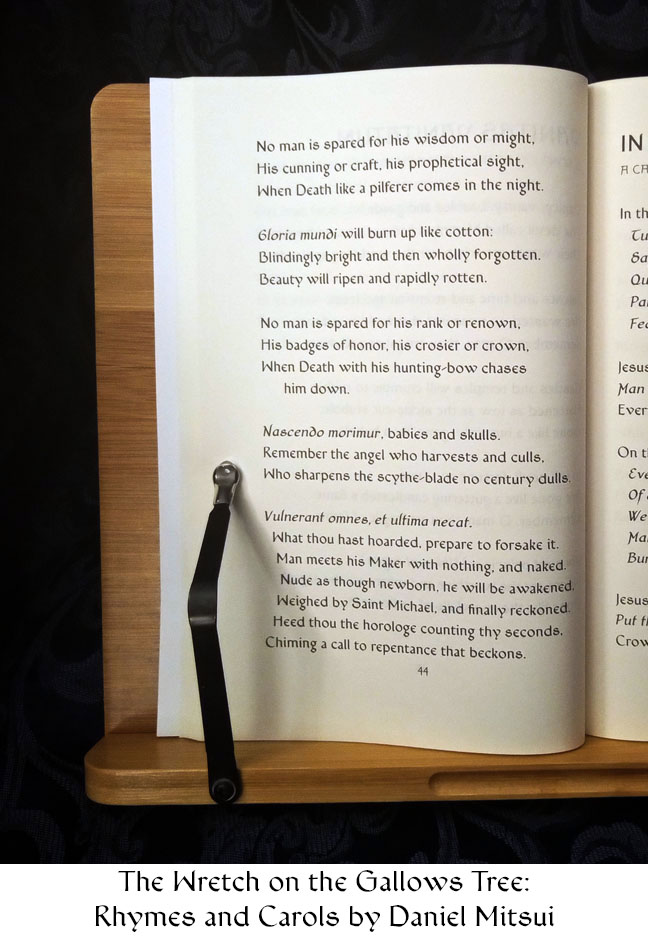 No man is spared for his wisdom or might,
His cunning or craft, his prophetical sight,
When Death like a pilferer comes in the night.
Gloria mundi will burn up like cotton:
Blindingly bright and then wholly forgotten.
Beauty will ripen and rapidly rotten.
No man is spared for his rank or renown,
His badges of honor, his crosier or crown,
When Death with his hunting-bow chases
him down.
Nascendo morimur, babies and skulls.
Remember the angel who harvests and culls,
Who sharpens the scythe-blade no century dulls.
Vulnerant omnes, et ultima necat.
What thou hast hoarded, prepare to forsake it.
Man meets his Maker with nothing, and naked.
Nude as though newborn, he will be awakened,
Weighed by Saint Michael, and finally reckoned.
Heed thou the horologe counting thy seconds,
Chiming a call to repentance that beckons.
44
IN
A
In
Jesus
Man
On
Of
We
Jesus
Put
The Wretch on the Gallows Tree:
Rhymes and Carols by Daniel Mitsui